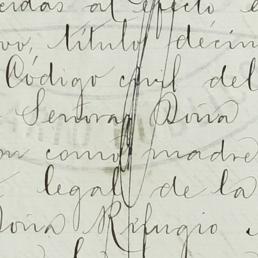 cidas al efecto e
vo, título décim
Código civil del
Señora Doña
m como madre
legal de la
Doña Refugio